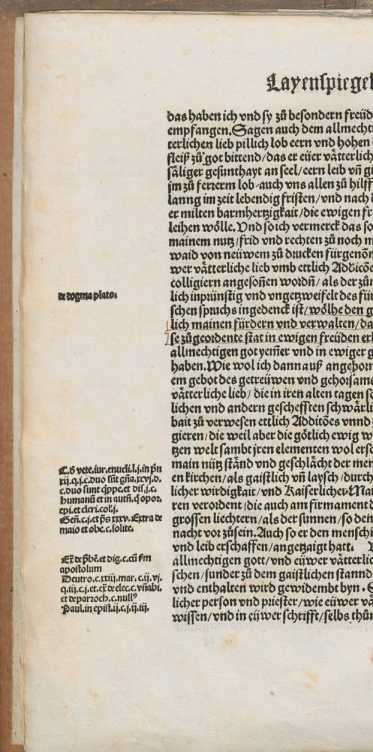 Layenspiegel
das haben ich vnd sy zů besondern freüd
empfangen. Sagen auch dem allmechti
terlichen lieb pillich lob eern vnd hohen
fleiß zů got bittend/das er eüer vätterlich
säliger gesunthayt an seel/eern leib vñ gů
jm zů fererm lob auch vns allen zů hilff
lanng im zeit lebendig fristen/vnd nach d
er milten barmhertzigkait/die ewigen fr
leihen wölle. Vnd so ich vermerck das so
mainem nutz/frid vnd rechten zů noch m
waid von neüwem zů drucken fürgenom
wer vätterliche lieb vmb ettlich Addicõe
colligiern angesoñen wordñ/als der zůu
de dogma plato.
lich inprünstig vnd vngetzweifelt des für
schen spruchs ingedenck ist/wölhe den g
lich mainen fürdern vnd verwalten/da
se zůgeordente stat in ewigen freüden erl
allmechtigen got yemer vnd in ewiger g
haben. Wie wol ich dann auß angeborn
em gebot des getreüwen vnd gehorsame
vätterliche lieb/die in iren alten tagen so
lichen vnd andern geschefften schwärlic
bait zů verwesen ettlich Additões vnnd
gieren/die weil aber die götlich ewig w
tzen welt sambt jren elementen wol ersch
main nütz ständ vnd geschlächt der men
en kirchen/als gaistlich vñ laysch/durch
licher wirdigkait/vnd Kaiserlicher Ma
ren verordent/die auch am firmament d
grossen liechtern/als der sunnen/so dem
nacht vor zůsein. Auch so er den mensch
vnd leib erschaffen/angetzaigt hatt.
allmechtigen gott/vnd eüwer vätterlic
schen/sunder zů dem gaistlichen stannd
vnd enthalten wird gewidembt byn. S
licher person vnd priester/wie eüwer vä
wissen/vnd in eüwer schrifft/selbs thůn
C. §. vete. iur. enucli. l. j. in pñ
xij. q. j. c. duo sũt gña. xcvj. d.
c. duo sunt q̃ppe. et dis. j. c.
humanũ et in autñ. q̃ opor.
epi. et cleri. col. j.
Geñ. c. j. et ps xxxv. Extra de
maio et obe. c. solite.
Ex̃ de pbẽ. et dig. c. cũ sm
apostolum
Deutro. c. xiij. mar. c. ij. vj.
q. iij. c. j. et. ex̃ de elec. c.
et de paroch. c. null9
Paul. in epist. ij. c. j. ij. iij.